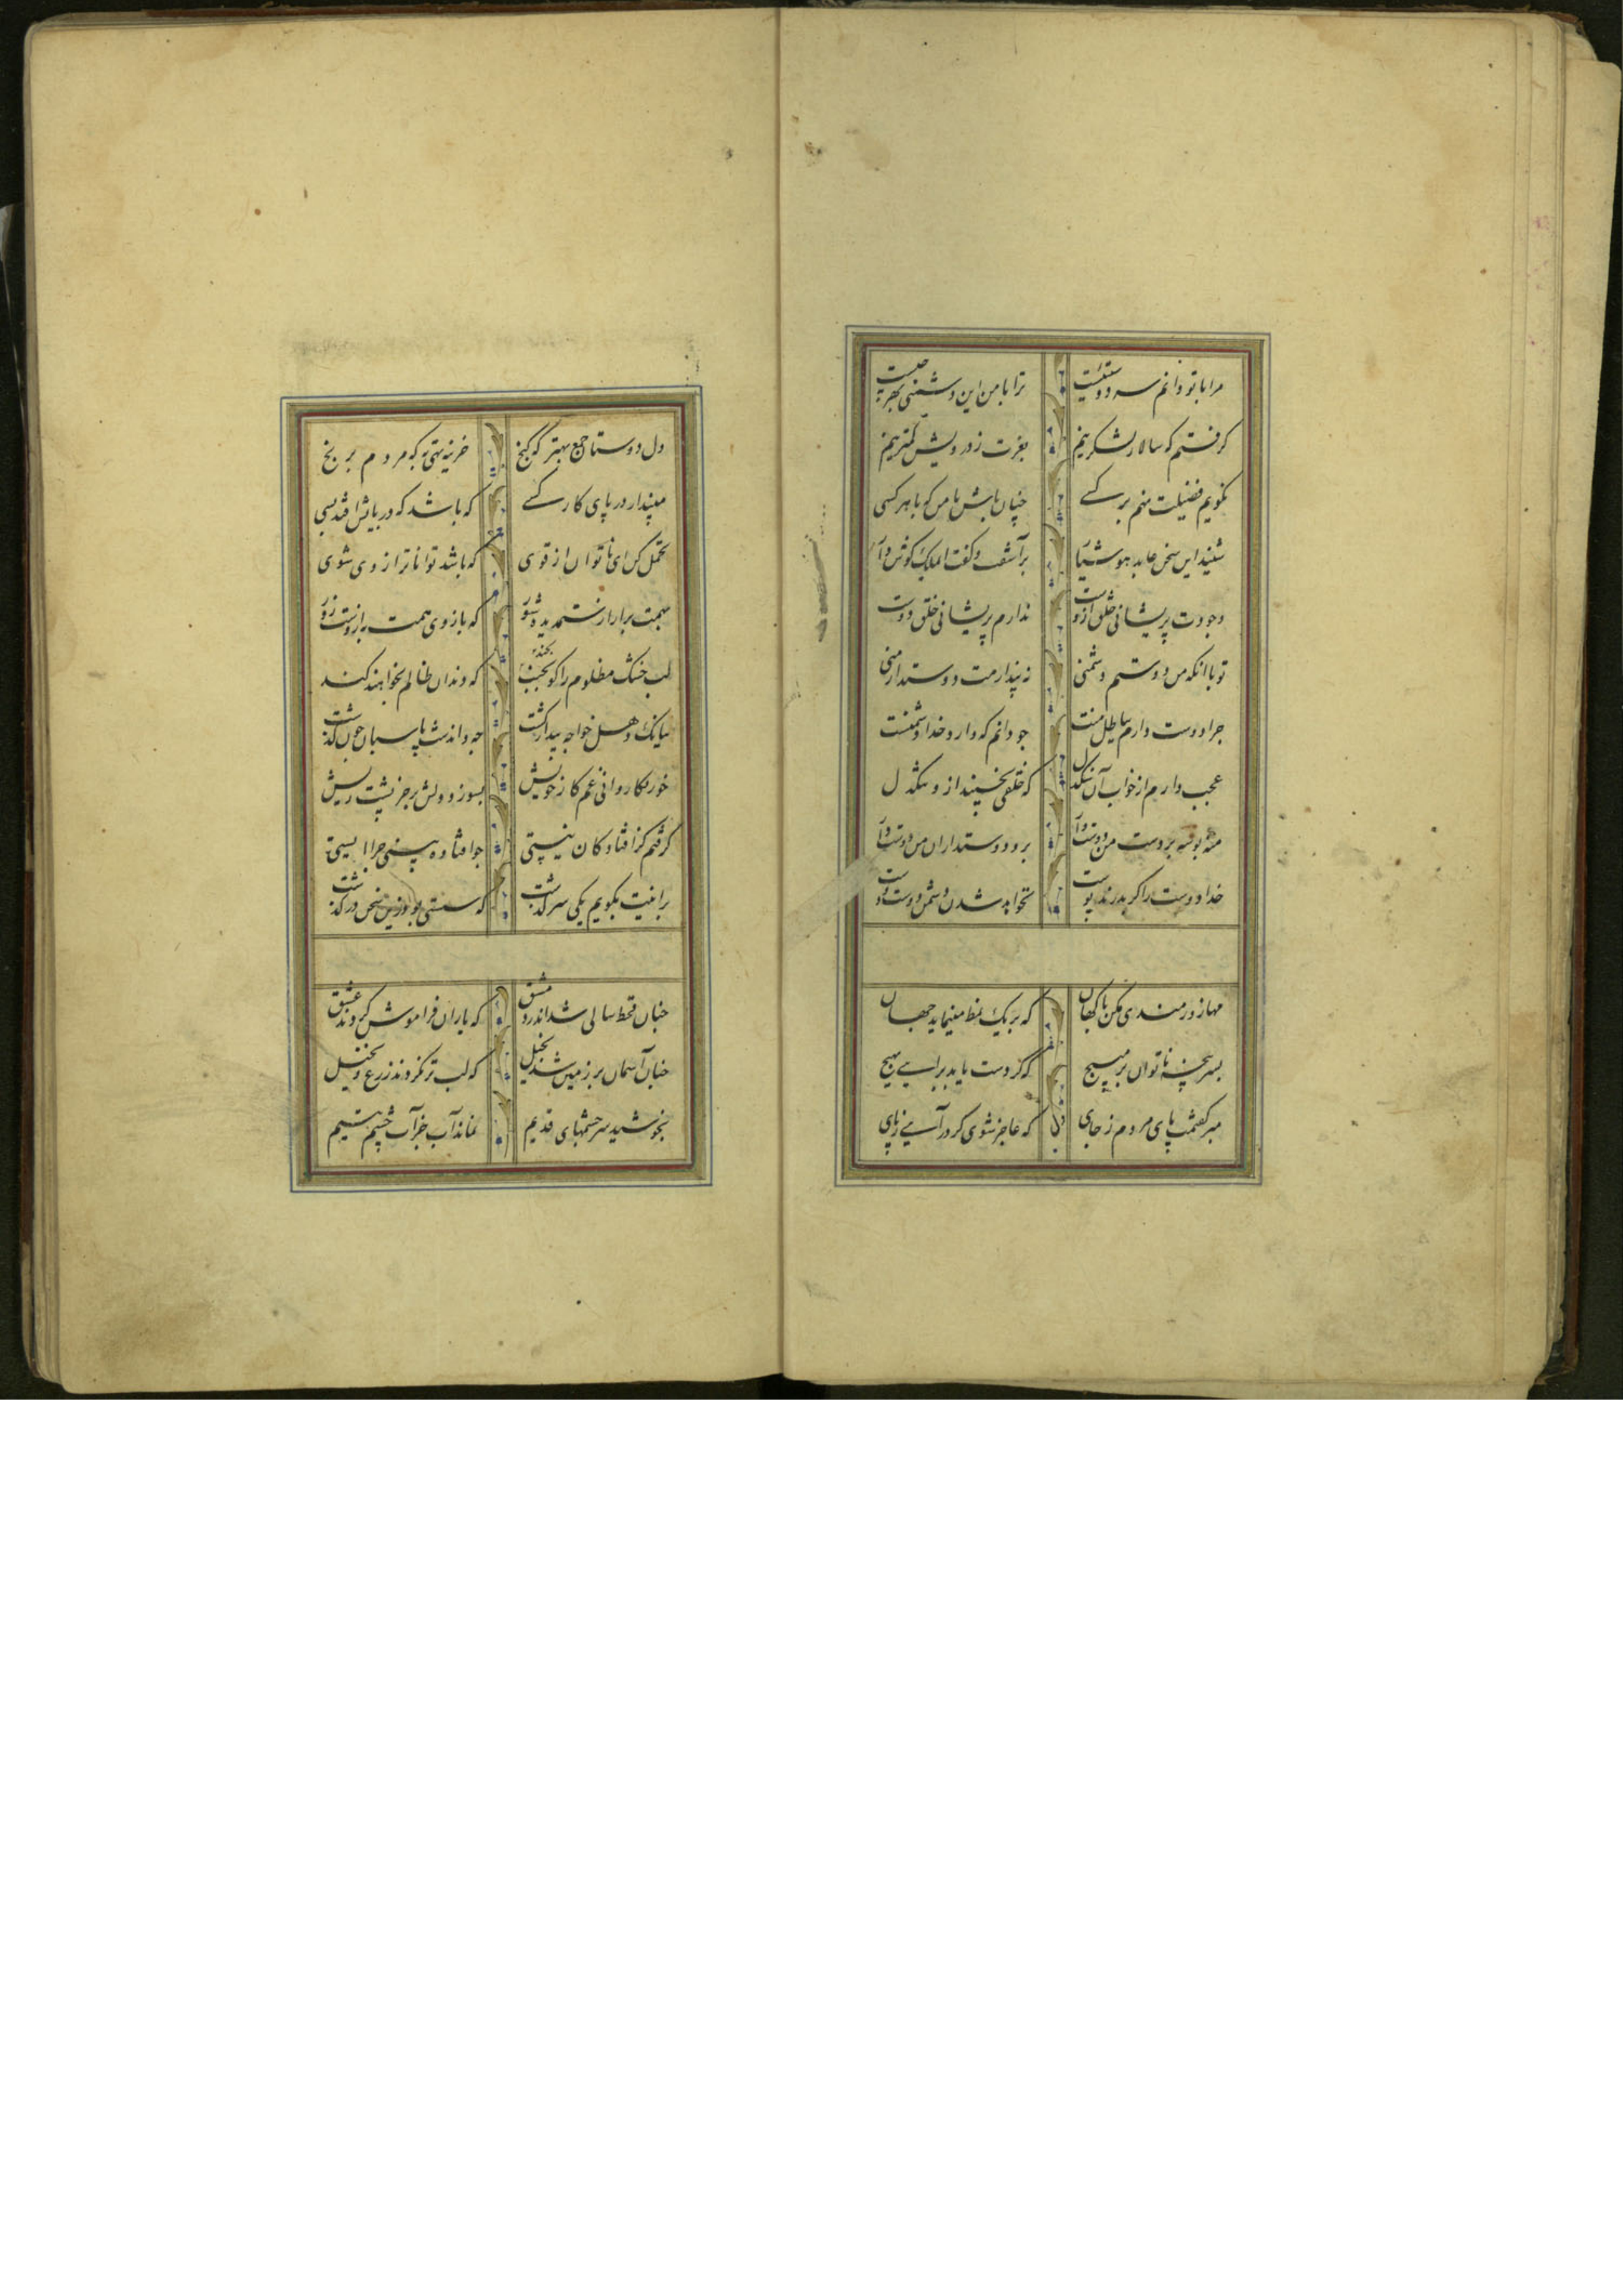 مرا با تو دانم سر دوستیست ترا با من این دشمنی بهر چیست
کرفتم که سالار لشکر نیم بعزت ز درویش کمتر نیم
نکویم فضیلت نهم بر کسی چنان باش با من که با هر کسی
شنید این سخن عابد هوشیار برآشفت و کفت ای ملک کوش دار
وجودت پریشانی خلق ازوست ندارم پریشانی خلق دوست
تو با انکه من دوستم دشمنی نه پندارمت دوستدار منی
چرا دوست دارم بباطل منت چو دانم که دارد خدا دشمنت
عجب دارم از خواب آن سنکدل که خلقی بخسپند ازو تنکدل
مده بوسه بر دست من دوست وار برو دوستداران من دوست دار
خدا دوست را کر بدرند پوست نخواهد شدن دشمن دوست دوست
مها زورمندی مکن با کهان که بر یک نمط می نماید جهان
سر پنجه ناتوان بر مپیچ که کر دست یابد برایی بهیچ
مبر کفتمت پای مردم ز جای که عاجز شوی کر درآیی ز پای
دل دوستان جمع بهتر که کنج خزینه تهی به که مردم برنج
مینداز در پای کار کسی که باشد که در پایش افتد بسی
تحمل کن ای ناتوان از قوی که باشد تواناتر از وی شوی
بهمت برار از ستمدیده شور که بازوی همت به از دست زور
لب خشک مظلوم را کو بخند که دندان ظالم بخواهند کند
ببانک دهل خواجه بیدار کشت چه داند شب پاسبان چون کذشت
خورد کاروانی غم کار خویش بسوزد دلش بر خر پشت ریش
کرفتم کز افتادکان نیستی چو افتاده بینی چرا ایستی
برانیت بکویم یکی سرکذشت که سستی بود زین سخن درکذشت
چنان قحط سالی شد اندر دمشق که یاران فراموش کردند عشق
چنان آسمان بر زمین شد بخیل که لب تر نکردند زرع و نخیل
بخوشید سرچشمهای قدیم نماند آب جز آب چشم یتیم